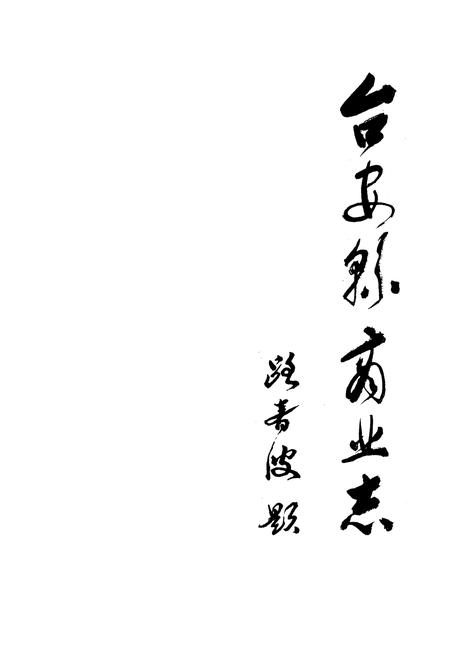 台安縣商业志
路青波题